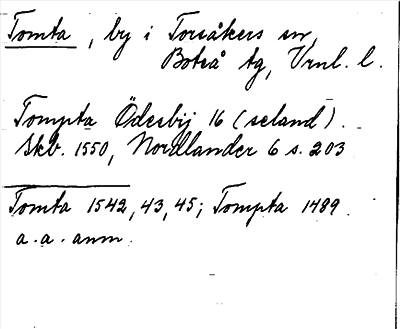 Tomta, by i Torsåkers sn,
Boteå tg, Vrnl. l.
Tompta Ödesbij 16 (seland).
Skb. 1550, Nordlander 6 s. 203
Tomta 1542, 43, 45; Tompta 1489.
a. a. anm.